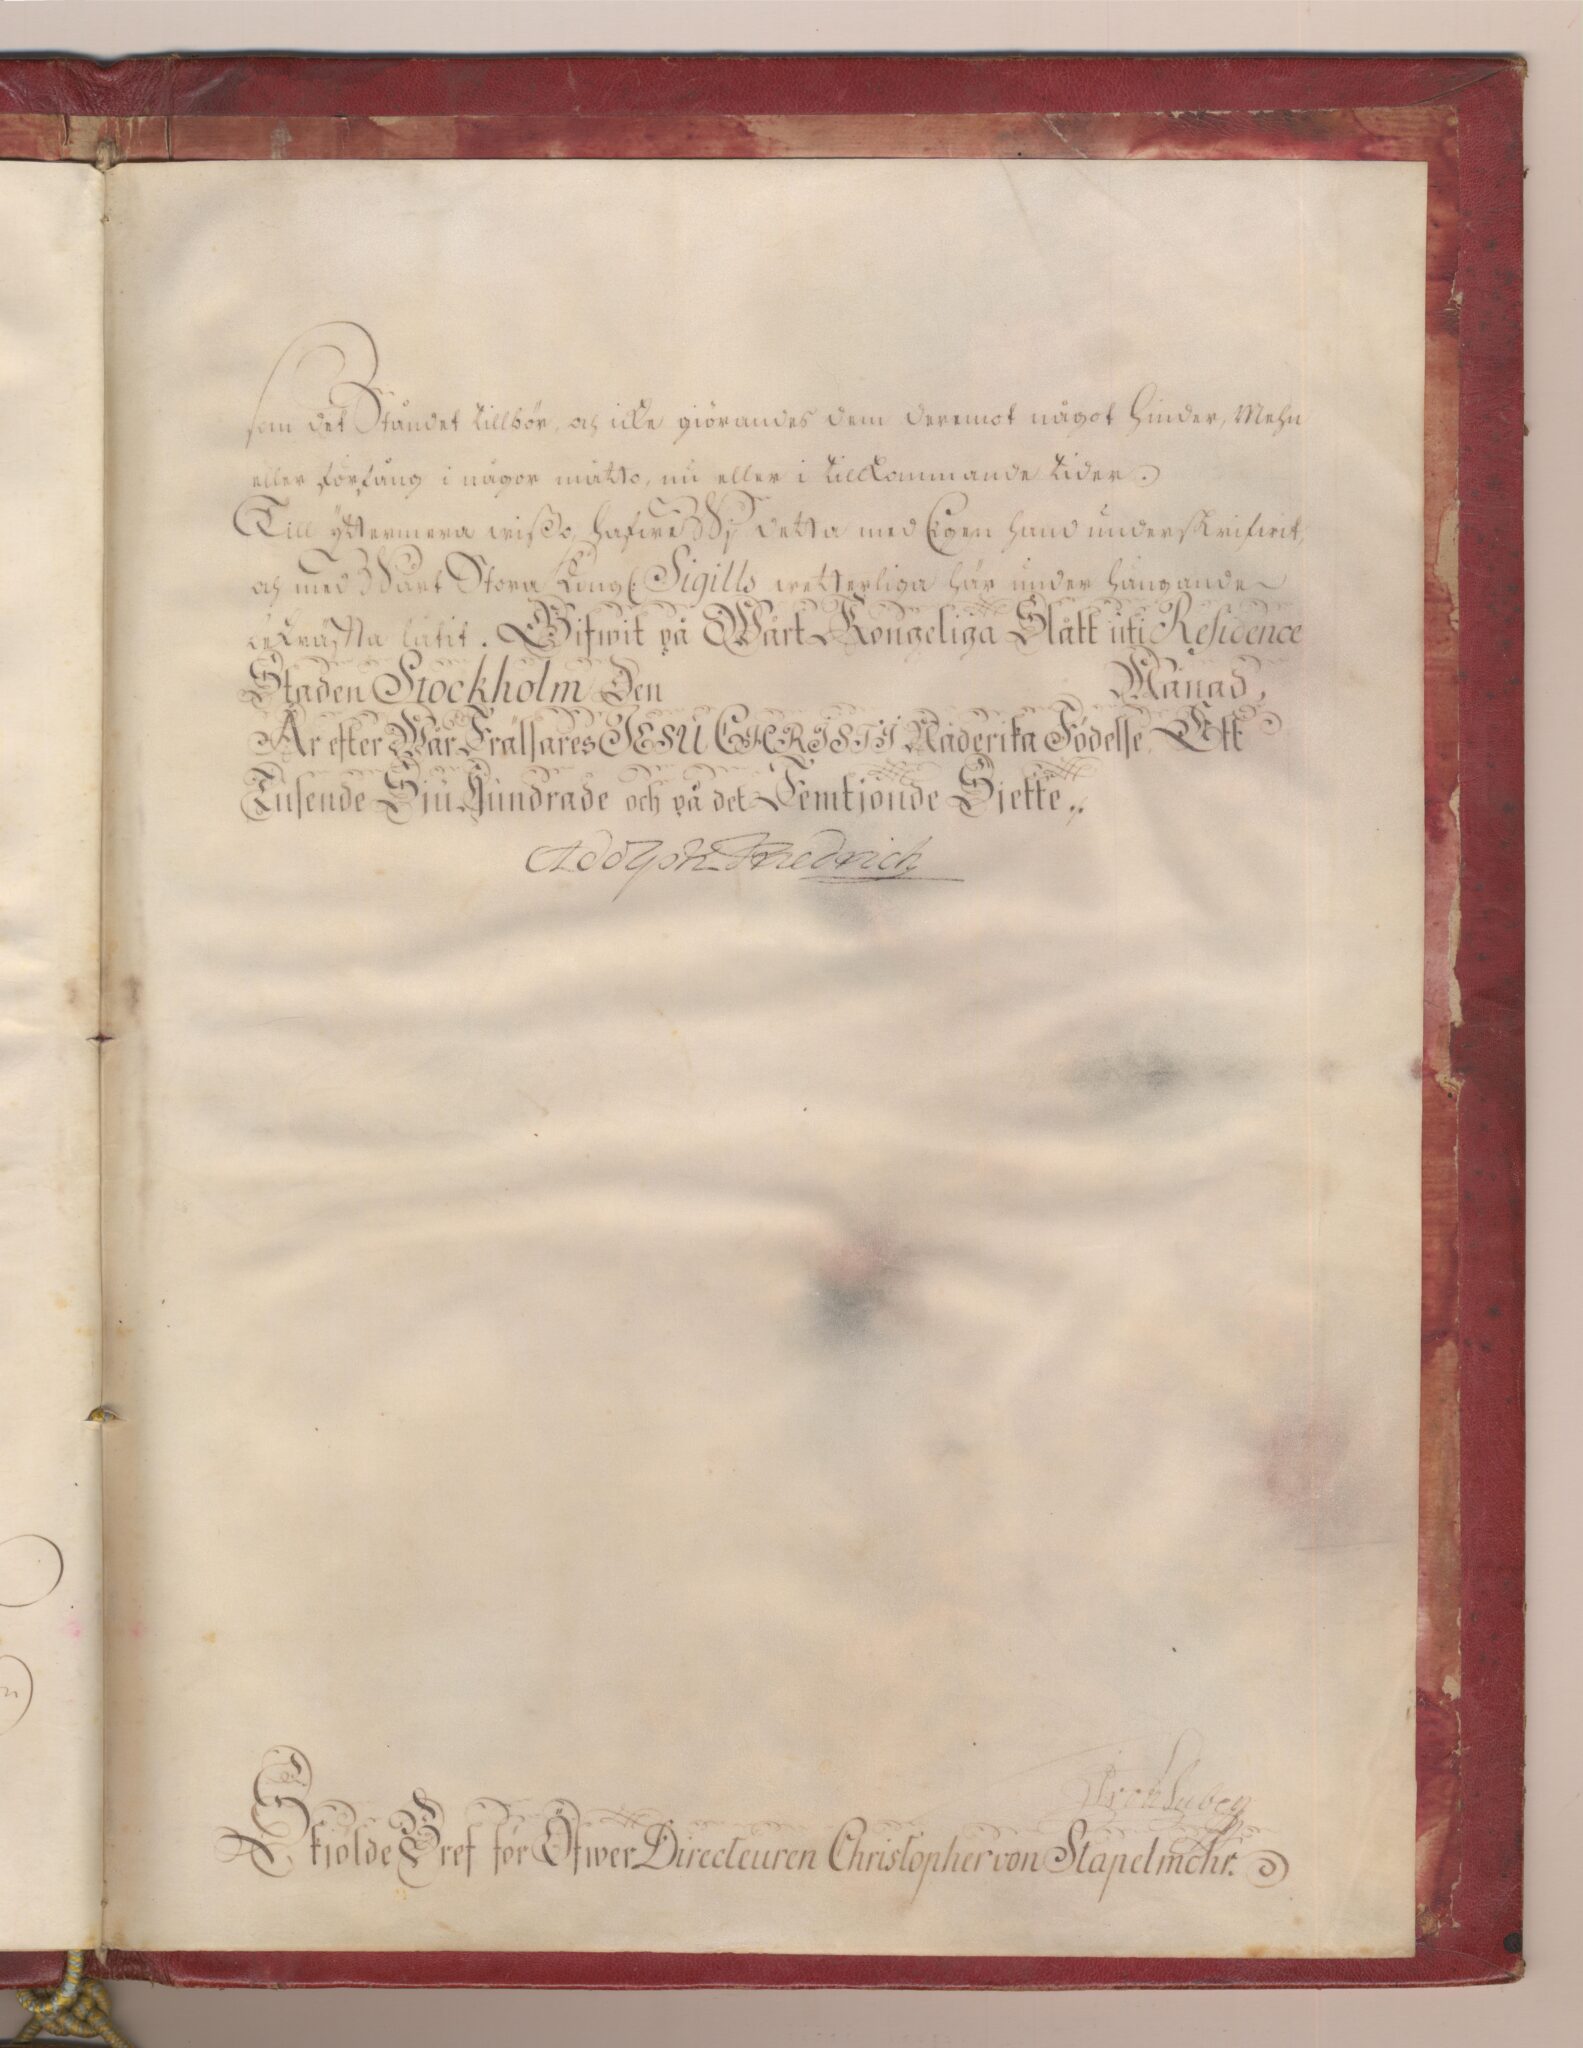 som det Ståndet tillhör, och icke giörandes dem deremot något Hinder, Mehn
eller förfång i någor måtto, nu eller i tillkommande tider.
Till yttermera wißo, hafwe Wi detta med Egen hand underskrifwit,
och med Wårt Stora Kongl: Sigills wetterliga här under hängande
bekräfta låtit. Gifwit på Wårt Kongeliga Slått uti Residence
Staden Stockholm den Månad,
År efter Wår Frälsares JESU CHRISTI Nåderika Födelse Ett
Tusende Sju Hundrade och på det Femtjonde Sjette.
Adolph Friedrich
Skjölde Bref för Öfwer Directeuren Christopher von Stapelmohr.